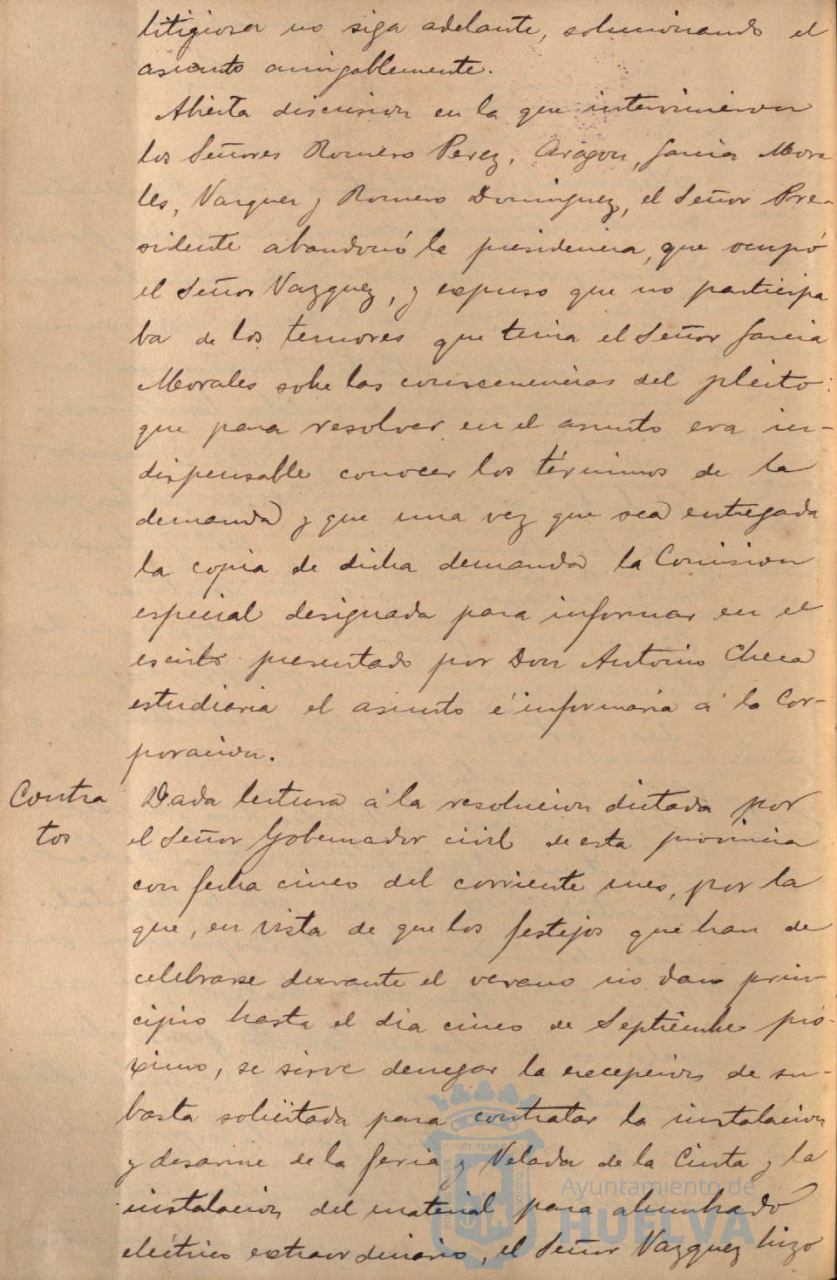 litigiosa no siga adelante, solucionando el
asunto amigablemente.
Abierta discusion en la que intervinieron
los Señores Romero Perez, Aragon, Garcia Mora
les, Vazquez y Romero Dominguez, el Señor Pre-
sidente abandonó la presidencia, que ocupó
el Señor Vazquez, y expuso que no participa
ba de los temores que tenia el Señor Garcia
Morales sobre las consecuencias del pleito:
que para resolver en el asunto era in-
dispensable conocer los términos de la
demanda y que una vez que sea entregada
la copia de dicha demanda la Comision
especial designada para informar en el
escrito presentado por Don Antonio Checa
estudiaria el asunto é informaria á la Cor-
poracion.
Contra
tos
Dada lectura á la resolucion dictada por
el Señor Gobernador civil de esta provincia
con fecha cinco del corriente mes, por la
que, en vista de que los festejos que han de
celebrarse durante el verano no dan prin-
cipio hasta el dia cinco de Septiembre pró-
ximo, se sirve denegar la excepcion de su-
basta solicitada para contratar la instalacion
y desarme de la feria y Velada de la Cinta y la
instalacion del material para alumbrado
eléctrico extraordinario, el Señor Vazquez hizo
Ayuntamiento de
HUELVA